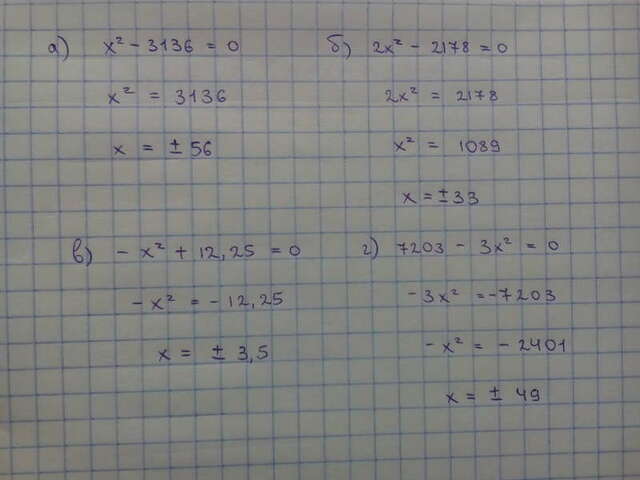 а) x² - 3136 = 0
x² = 3136
x = ± 56
б) 2x² - 2178 = 0
2x² = 2178
x² = 1089
x = ± 33
в) - x² + 12,25 = 0
- x² = - 12,25
x = ± 3,5
г) 7203 - 3x² = 0
- 3x² = - 7203
- x² = - 2401
x = ± 49